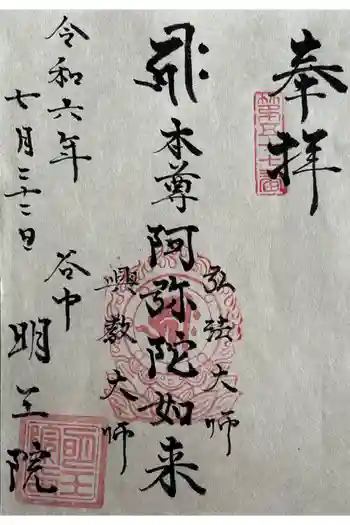 奉拝
第五十七番
本尊阿弥陀如来
弘法大師
興教大師
令和六年
七月二十二日
谷中
明王院
明王院